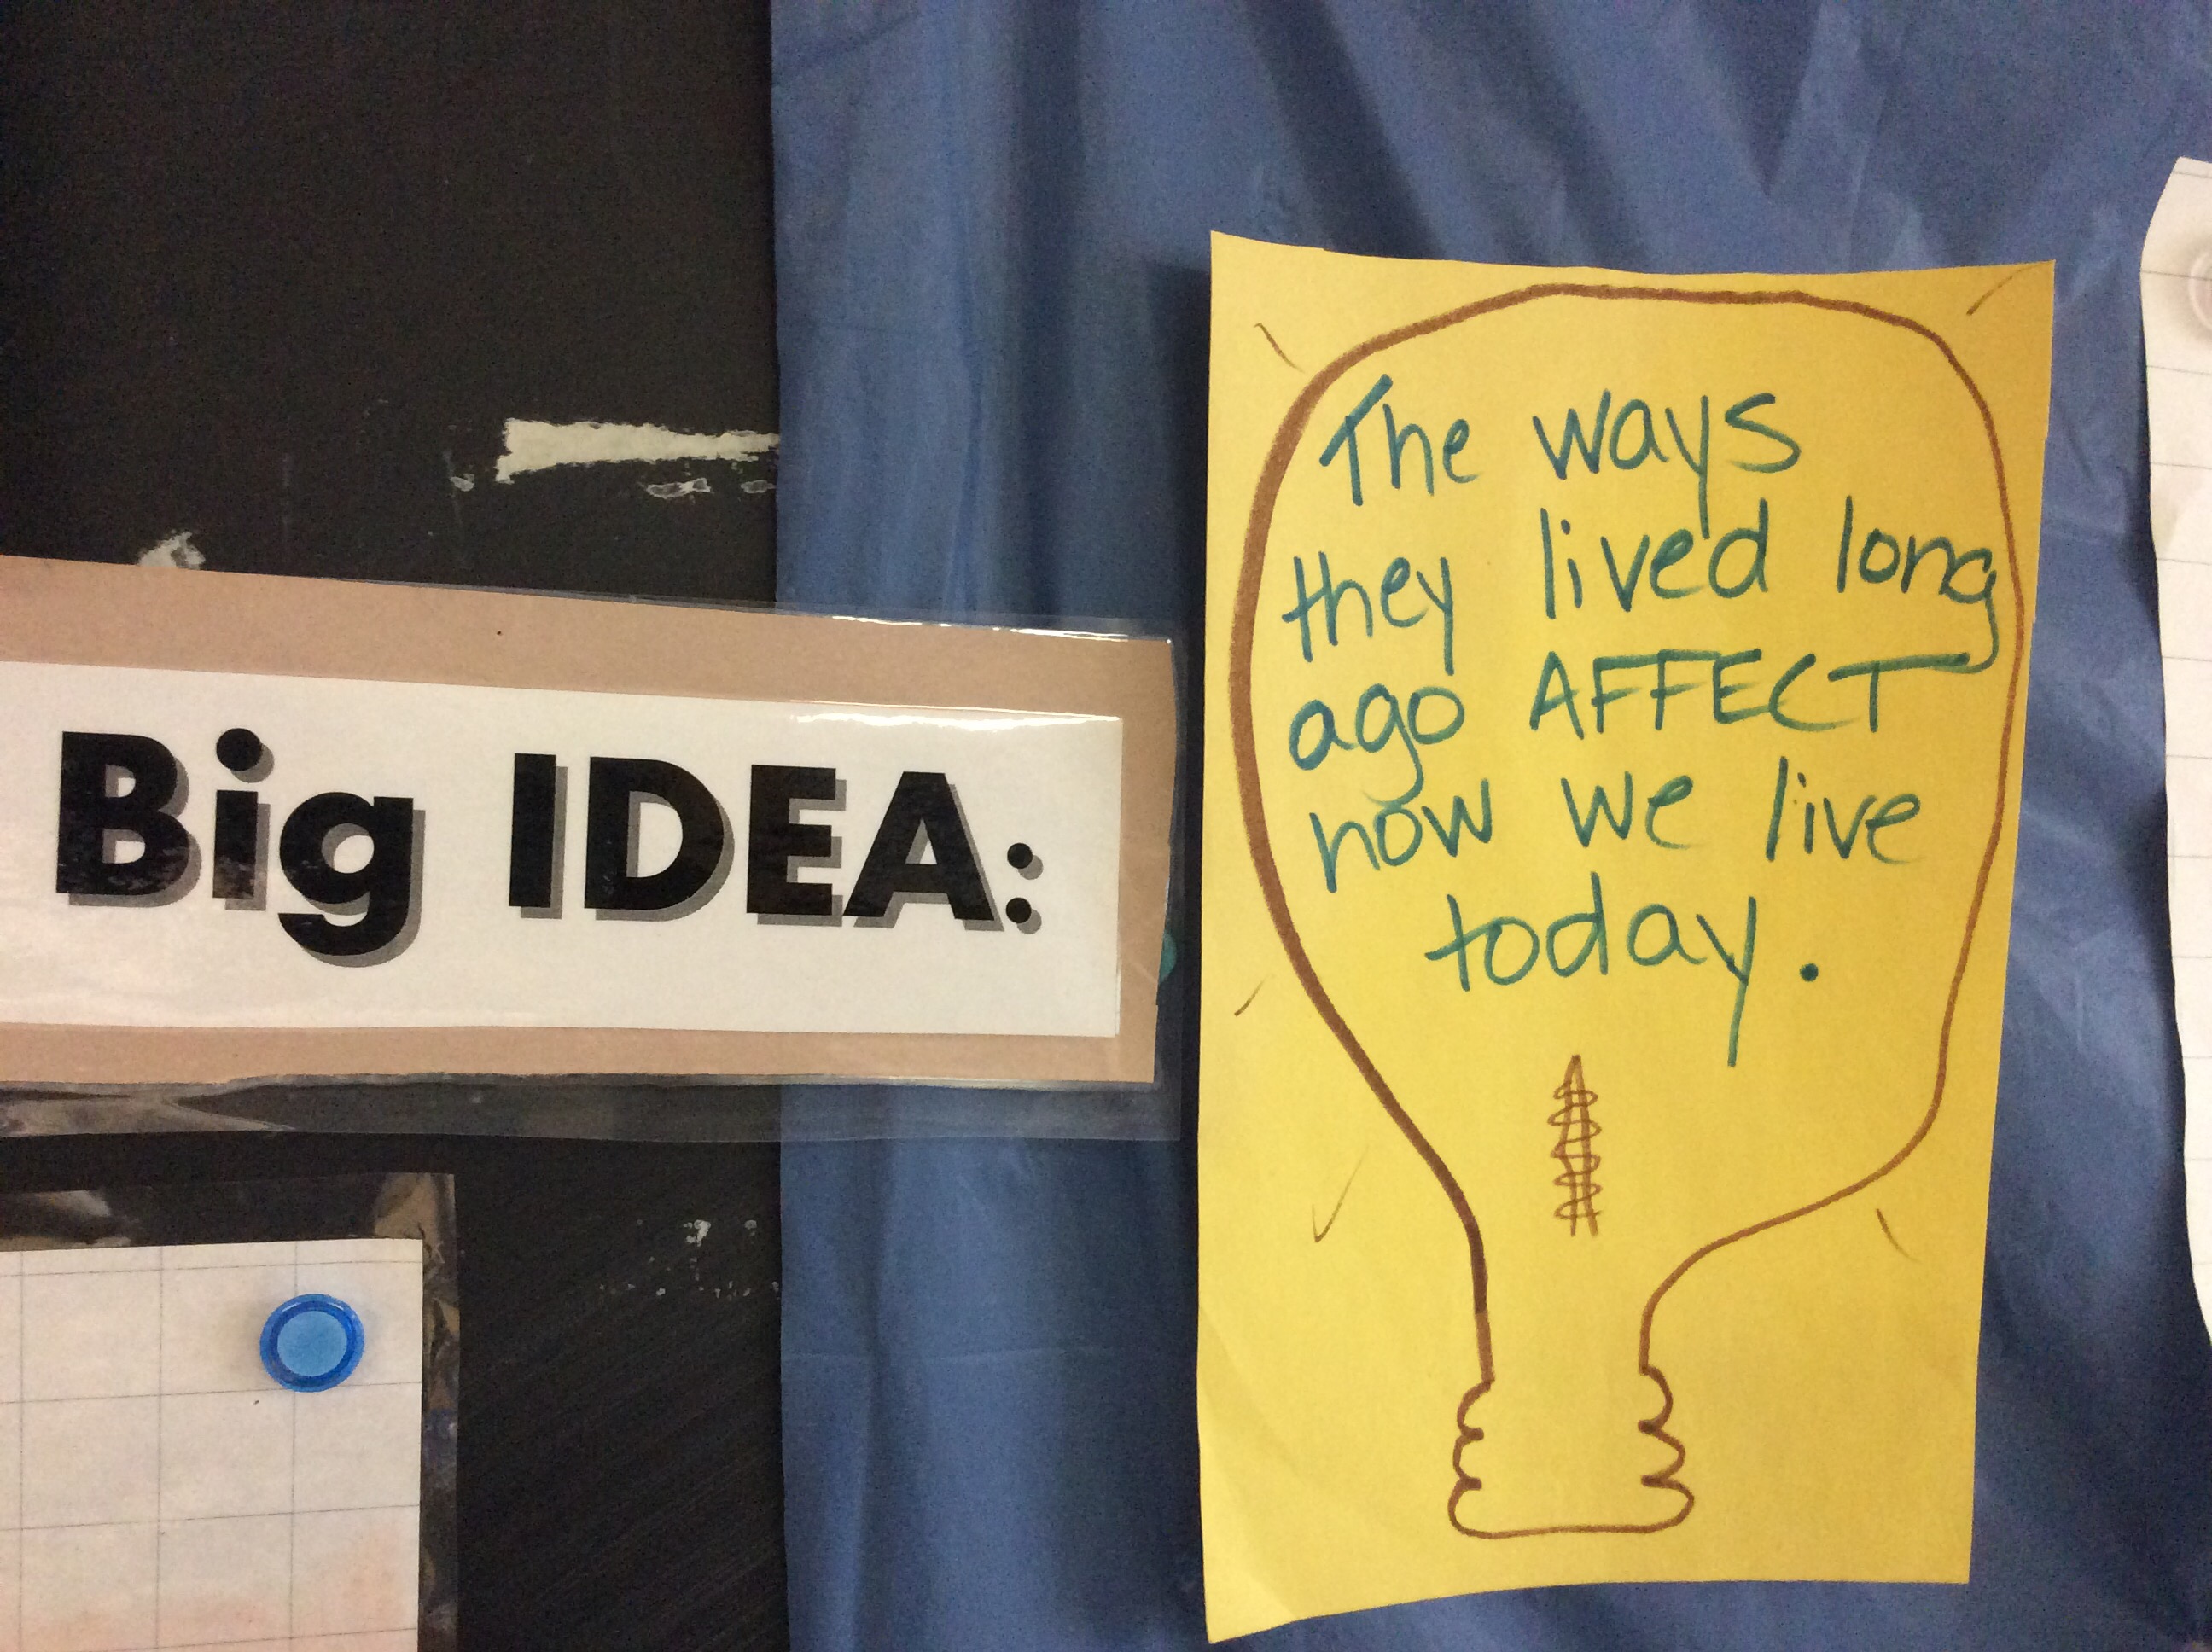 Big IDEA:
The ways
they lived long
ago AFFECT
how we live
today.